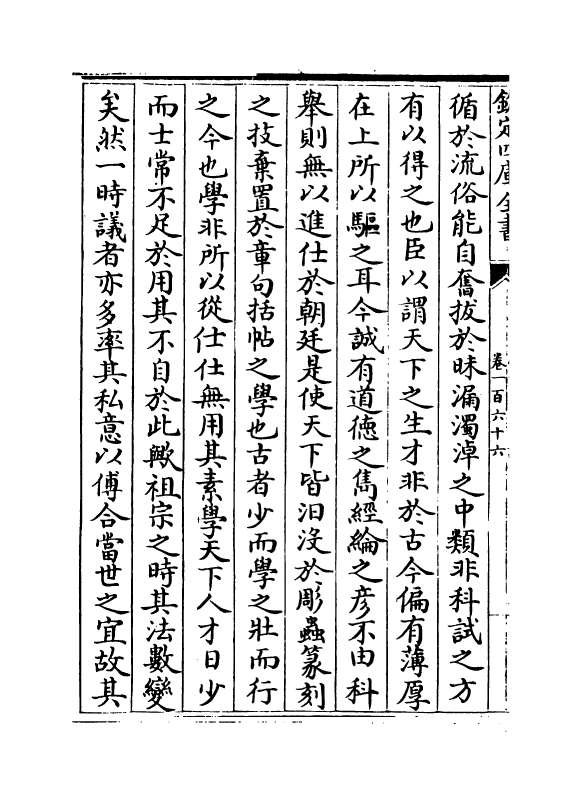 欽定四庫全書
卷一百六十六
循於流俗能自奮拔於昧漏濁淖之中類非科試之方
有以得之也臣以謂天下之生才非於古今偏有薄厚
在上所以驅之耳今誠有道徳之雋經綸之彦不由科
舉則無以進仕於朝廷是使天下皆汩沒於彫蟲篆刻
之技棄置於章句括帖之學也古者少而學之壯而行
之今也學非所以從仕仕無用其素學天下人才日少
而士常不足於用其不自於此歟祖宗之時其法數變
矣然一時議者亦多率其私意以傅合當世之宜故其